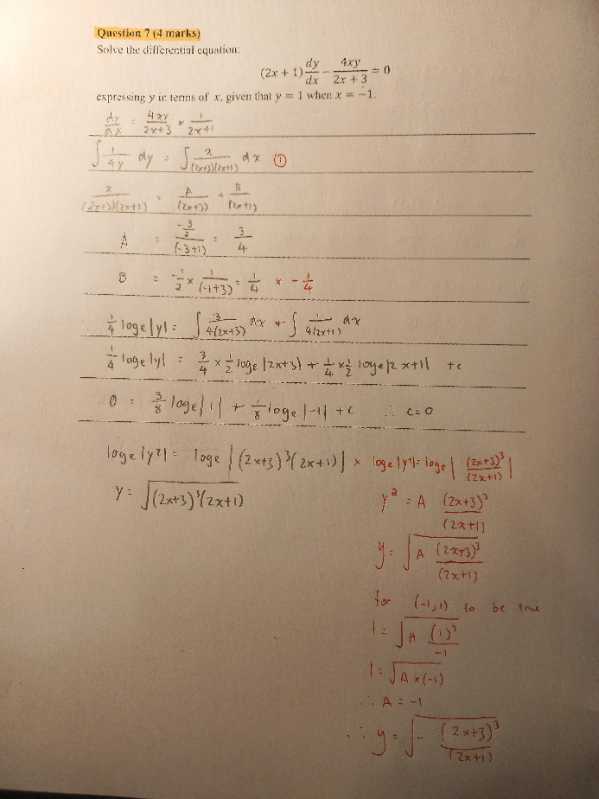 Question 7 (4 marks)
Solve the differential equation:
(2x + 1) dy/dx − 4xy/(2x + 3) = 0
expressing y in terms of x, given that y = 1 when x = −1.
dy/dx = 4xy/(2x+3) × 1/(2x+1)
∫ 1/(4y) dy = ∫ x/((2x+3)(2x+1)) dx ①
x/((2x+3)(2x+1)) = A/(2x+3) + B/(2x+1)
A = (−3/2)/(−3+1) = 3/4
B = −1/2 × 1/(−1+3) = 1/4 × −1/4
1/4 loge|y| = ∫ 3/(4(2x+3)) dx + ∫ 1/(4(2x+1)) dx
1/4 loge|y| = 3/4 × 1/2 loge|2x+3| + 1/4 × 1/2 loge|2x+1| + c
0 = 3/8 loge|1| + 1/8 loge|−1| + c ∴ c=0
loge|y²| = loge|(2x+3)³(2x+1)| ×
y = √((2x+3)³(2x+1))
loge|y²| = loge|(2x+3)³/(2x+1)|
y² = A (2x+3)³/(2x+1)
y = √(A (2x+3)³/(2x+1))
for (-1,1) to be true
1 = √(A (1)³/−1)
1 = √(A×(−1))
∴ A = −1
∴ y = √(− (2x+3)³/(2x+1))